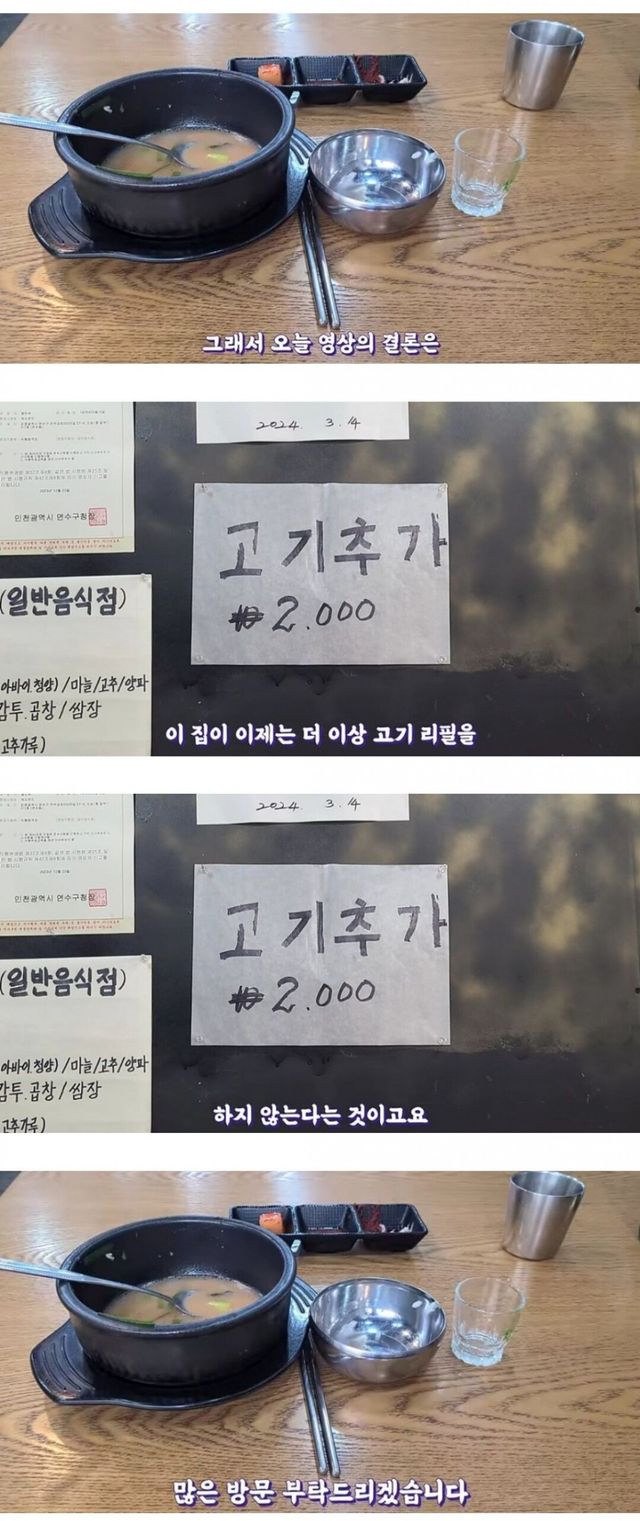 그래서 오늘 영상의 결론은
2024. 3. 14
인천광역시 연수구청장
고기추가
₩2.000
(일반음식점)
아바이.청양) / 마늘/고추/양파
감투.곱창 / 쌈장
고추가루)
이 집이 이제는 더 이상 고기 리필을
2024. 3. 14
인천광역시 연수구청장
고기추가
₩2.000
(일반음식점)
아바이.청양) / 마늘/고추/양파
감투.곱창 / 쌈장
고추가루)
하지 않는다는 것이고요
많은 방문 부탁드리겠습니다